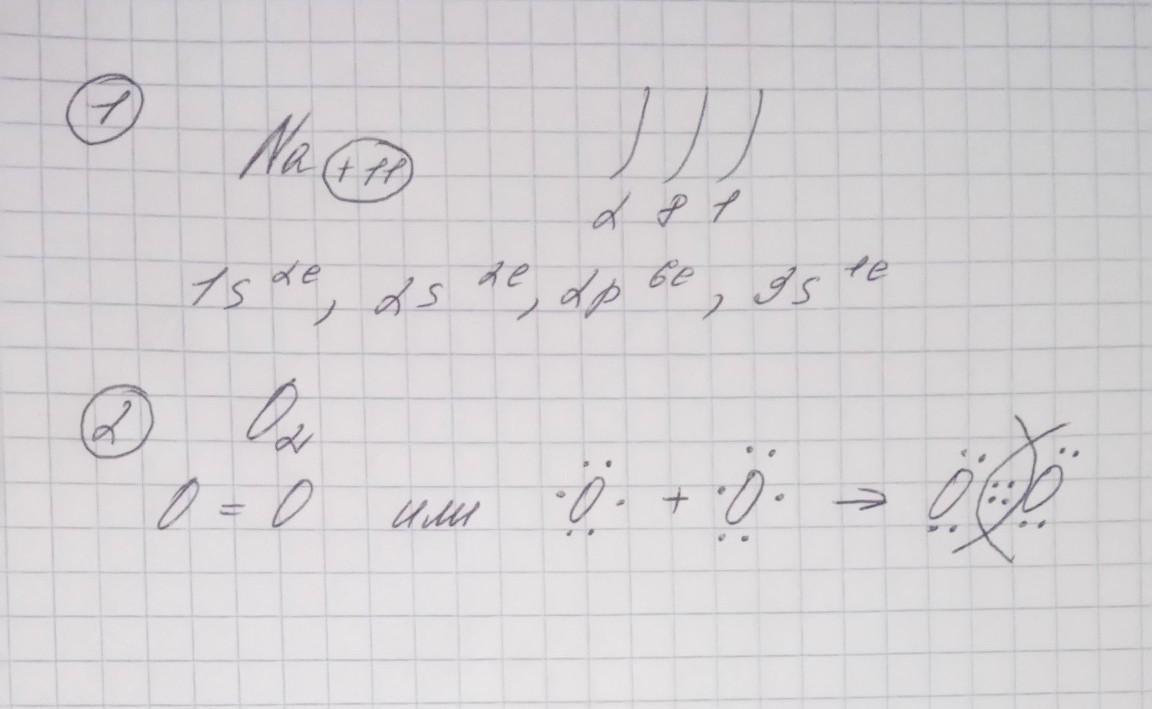 1
Na +11 ) ) )
2 8 1
1s²ᵉ, 2s²ᵉ, 2p⁶ᵉ, 3s¹ᵉ
2 O₂
O = O или ·Ö̤· + ·Ö̤· → Ö̤::Ö̤